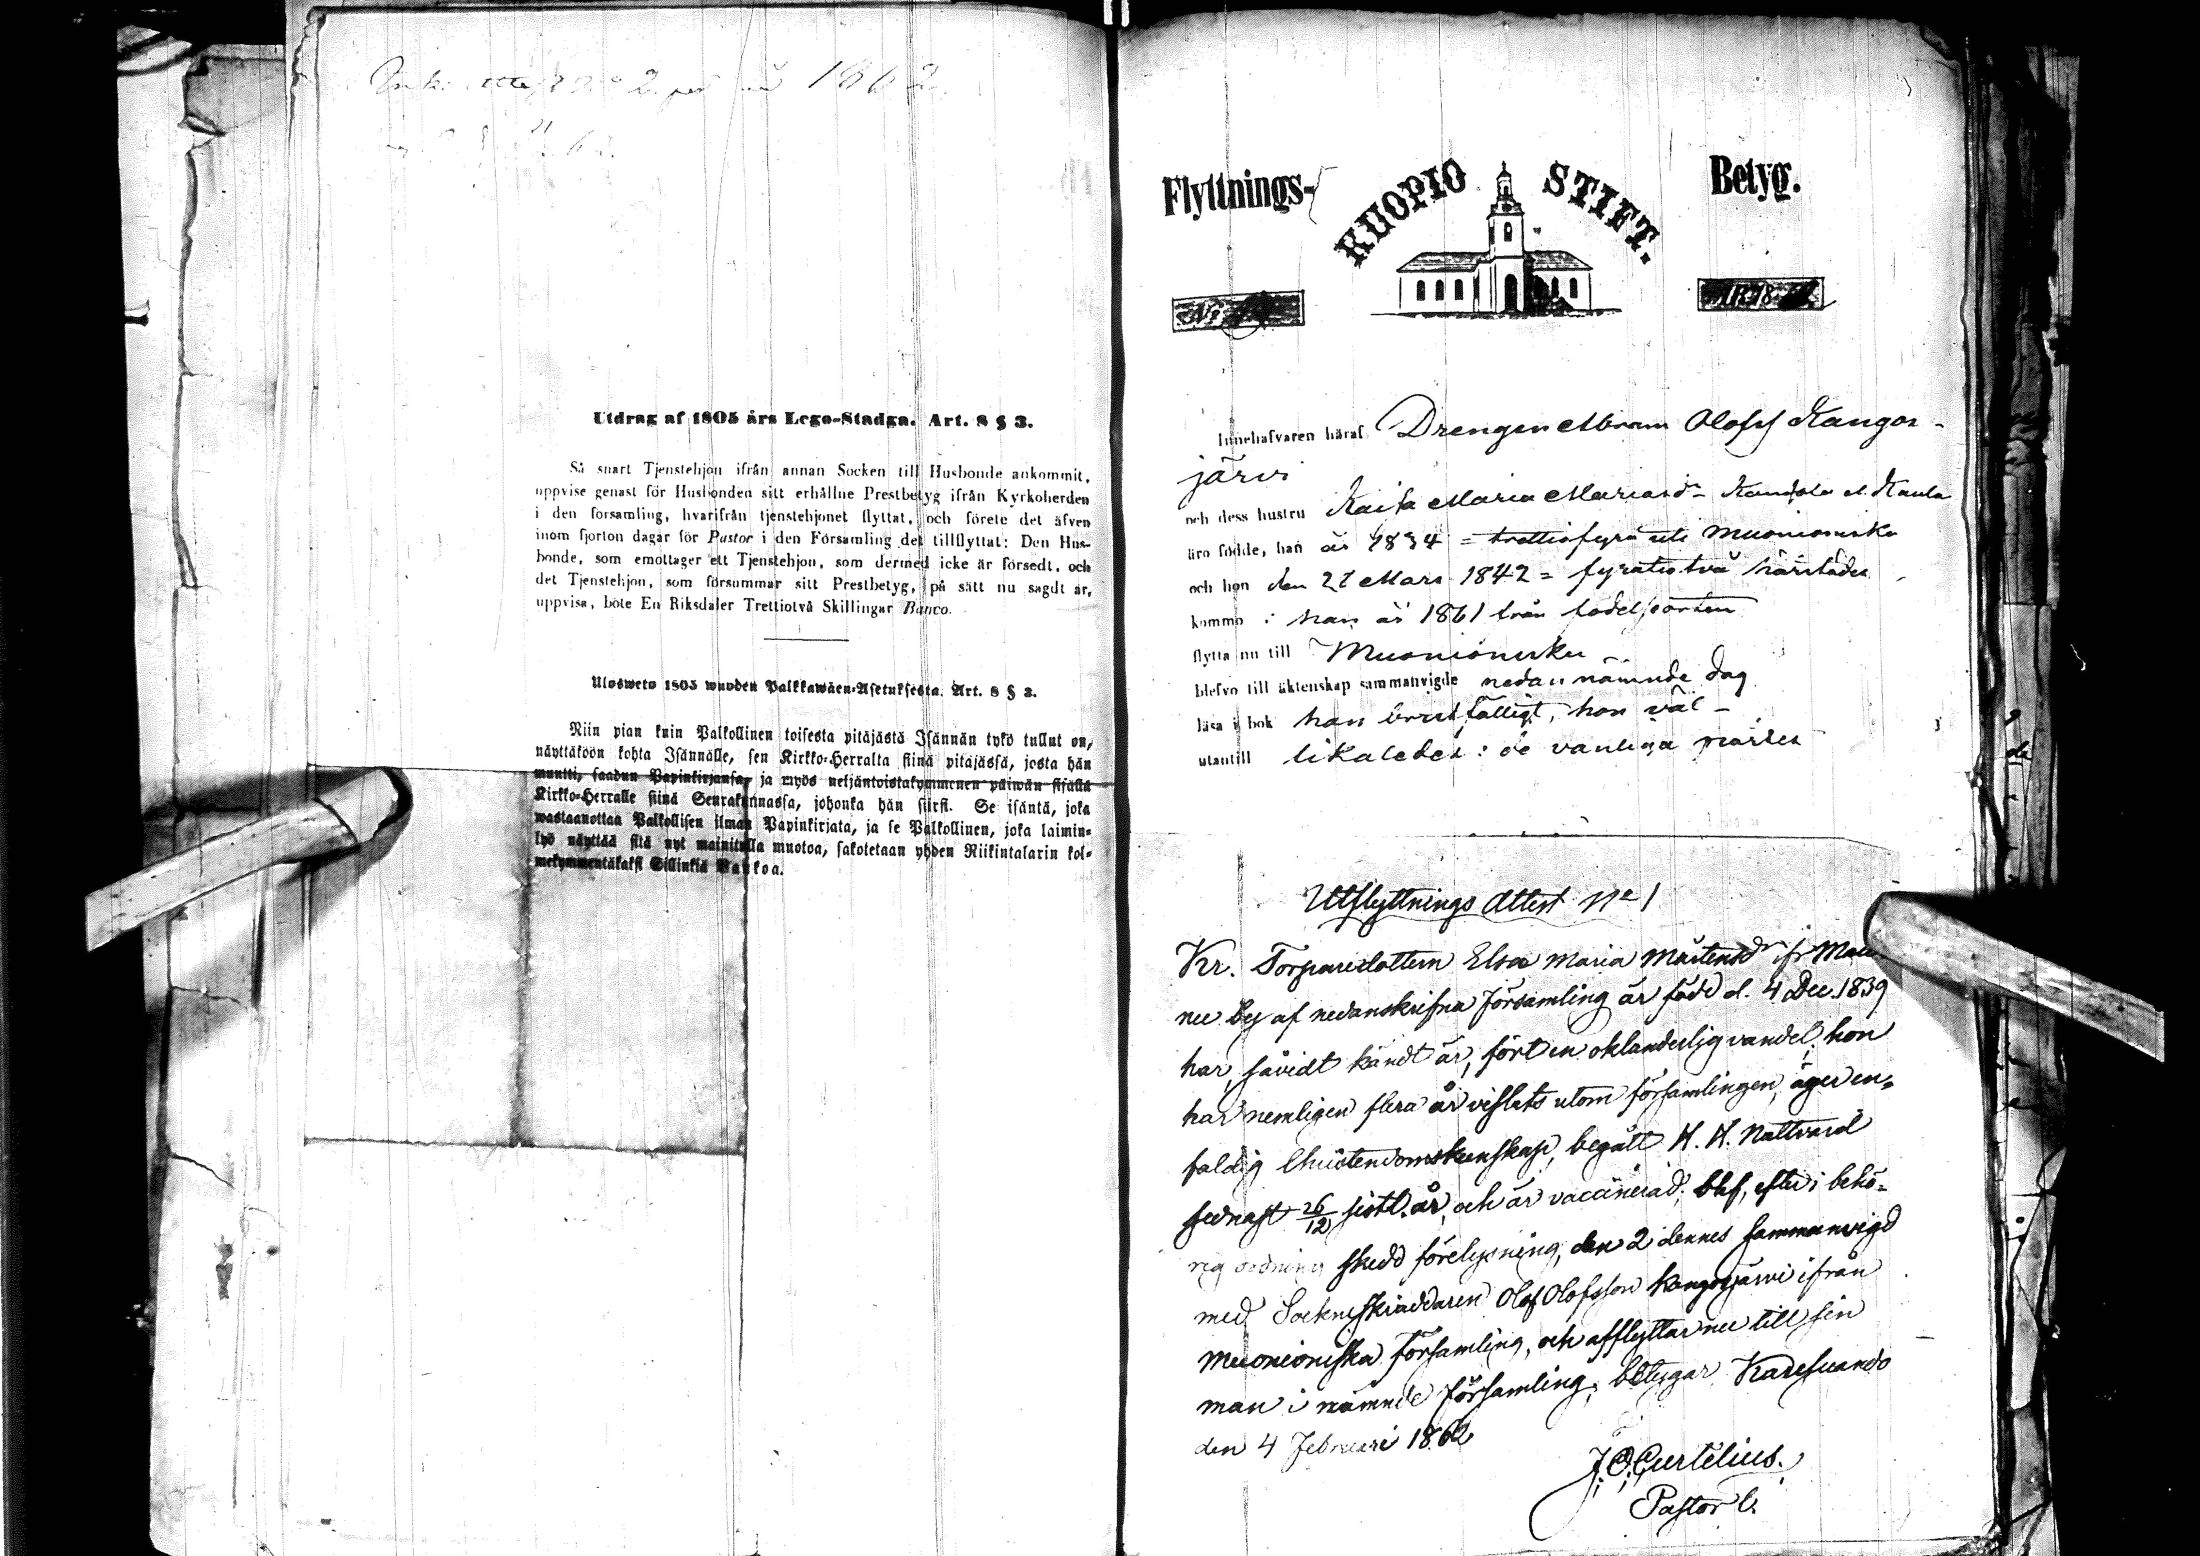 1862
Utdrag af 1805 års Lego-Stadga. Art. 8 § 3.
Så snart Tjenstehjon ifrån annan Socken till Husbonde ankommit,
uppvise genast för Husbonden sitt erhållne Prestbetyg ifrån Kyrkoherden
i den forsamling, hvarifrån tjenstehjonet flyttat, och förete det äfven
inom fjorton dagar för Pastor i den Församling det tillflyttat: Den Hus-
bonde, som emottager ett Tjenstehjon, som dermed icke är försedt, och
det Tjenstehjon, som försummar sitt Prestbetyg, på sätt nu sagdt är,
uppvisa, böte En Riksdaler Trettiotvå Skillingar Banco.
Ulosweto 1805 wuoden Palkkawäen-Asetuksesta. Art. 8 § 3.
Niin pian kuin Palkollinen toisesta pitäjästä Isännän tykö tullut on,
näyttäköön kohta Isännälle, sen Kirkko-Herralta siinä pitäjässä, josta hän
muutti, saadun Papinkirjansa, ja myös neljäntoistakymmenen päiwän sisällä
Kirkko-Herralle siinä Seurakunnassa, johonka hän siirsi. Se isäntä, joka
wastaanottaa Palkollisen ilman Papinkirjata, ja se Palkollinen, joka laimin-
lyö näyttää sitä nyt mainitulla muotoa, sakotetaan yhden Riikintalarin kol-
mekymmentäkaksi Sillinkiä Bankoa.
Flyttnings-
KUOPIO STIFT.
Betyg.
N:
ÅR 18
Innehafvaren häraf Drengen Abram Olofss Kangos-
järvi
och dess hustru Kaisa Maria Mariasdr
äro födde, han år 1834 = trettiofyra uti Muonioniska
och hon den 27 Mars 1842 = fyratiotvå härstädes
kommo : han år 1861 från födelseorten
flytta nu till Muonioniska
blefvo till äktenskap sammanvigde nedannämnde dag
läsa i bok han bristfälligt, hon väl -
utantill likaledes: de vanliga
Utflyttnings Attest No 1
Kr. Torparedottern Elsa Maria Mårtensdr ifr
nu by af nedanskrifna Församling är född d. 4 Dec. 1839
har, såvidt kändt är, fört en oklanderlig vandel, hon
har nemligen flera år vistats utom församlingen, äger en-
faldig Christendomskunskap, begått H. H. Nattvard
sednast 26/12 sistl. år, och är vaccinerad; blef, efter i behö-
rig ordning skedd förelysning, den 2 dennes sammanvigd
med Sockneskräddaren Olof Olofsson Kangosjärwi ifrån
Muonioniska Församling, och afflyttar nu till sin
man i nämnde Församling, betygar Karesuando
den 4 Februari 1862
J. O. Curtelius.
Pastor